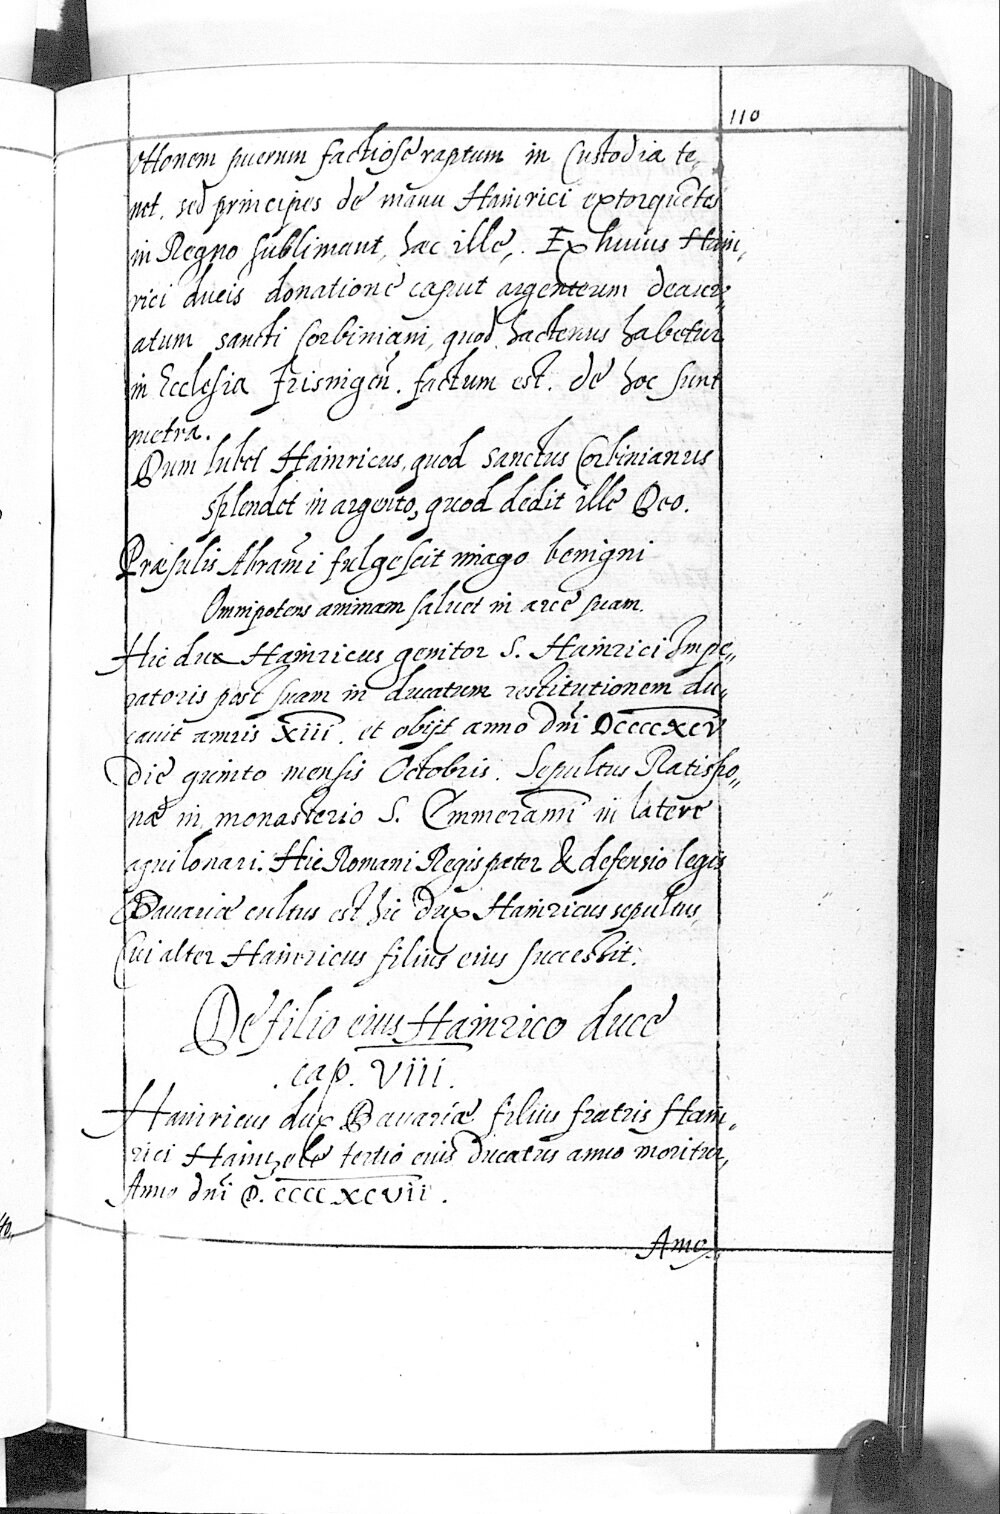 110
ottonem puerum factiose raptum in Custodia te„
net. sed principes de manu Hainrici extorquetes
in Regno sublimant, hac ille,. Ex huius Hain„
rici ducis donatione caput argenteum deaur„
atum sancti Corbiniani, quod hactenus habetur
in Ecclesia Frisingen̄. factum est. de hoc sunt
metra.
Dum lubet Hainricus, quod sanctus Corbinianus
splendet in argento, quod dedit ille Deo.
Præsulis Abrami fulgescit imago benigni
Omnipotens animam saluet in arce suam.
Hic dux Hainricus genitor S. Hainrici Impe„
ratoris post suam in ducatum restitutionem du„
cauit annis XIII. et obijt anno dn̄i DCCCCXCV
Die quinto mensis Octobris. Sepultus Ratispo„
næ in monasterio S. Emmerami in latere
aquilonari. Hic Romani Regis pater & defensio legis
Bauariæ cultus est hic dux Hainricus sepultus,
Cui alter Hainricus filius eius successit.
De filio eius Hainrico duce
.cap. VIII.
Hainricus dux Bauariæ filius fratris Hain„
rici Hainzele tertio eius ducatus anno moritur,
Anno dn̄i D.CCCCXCVII.